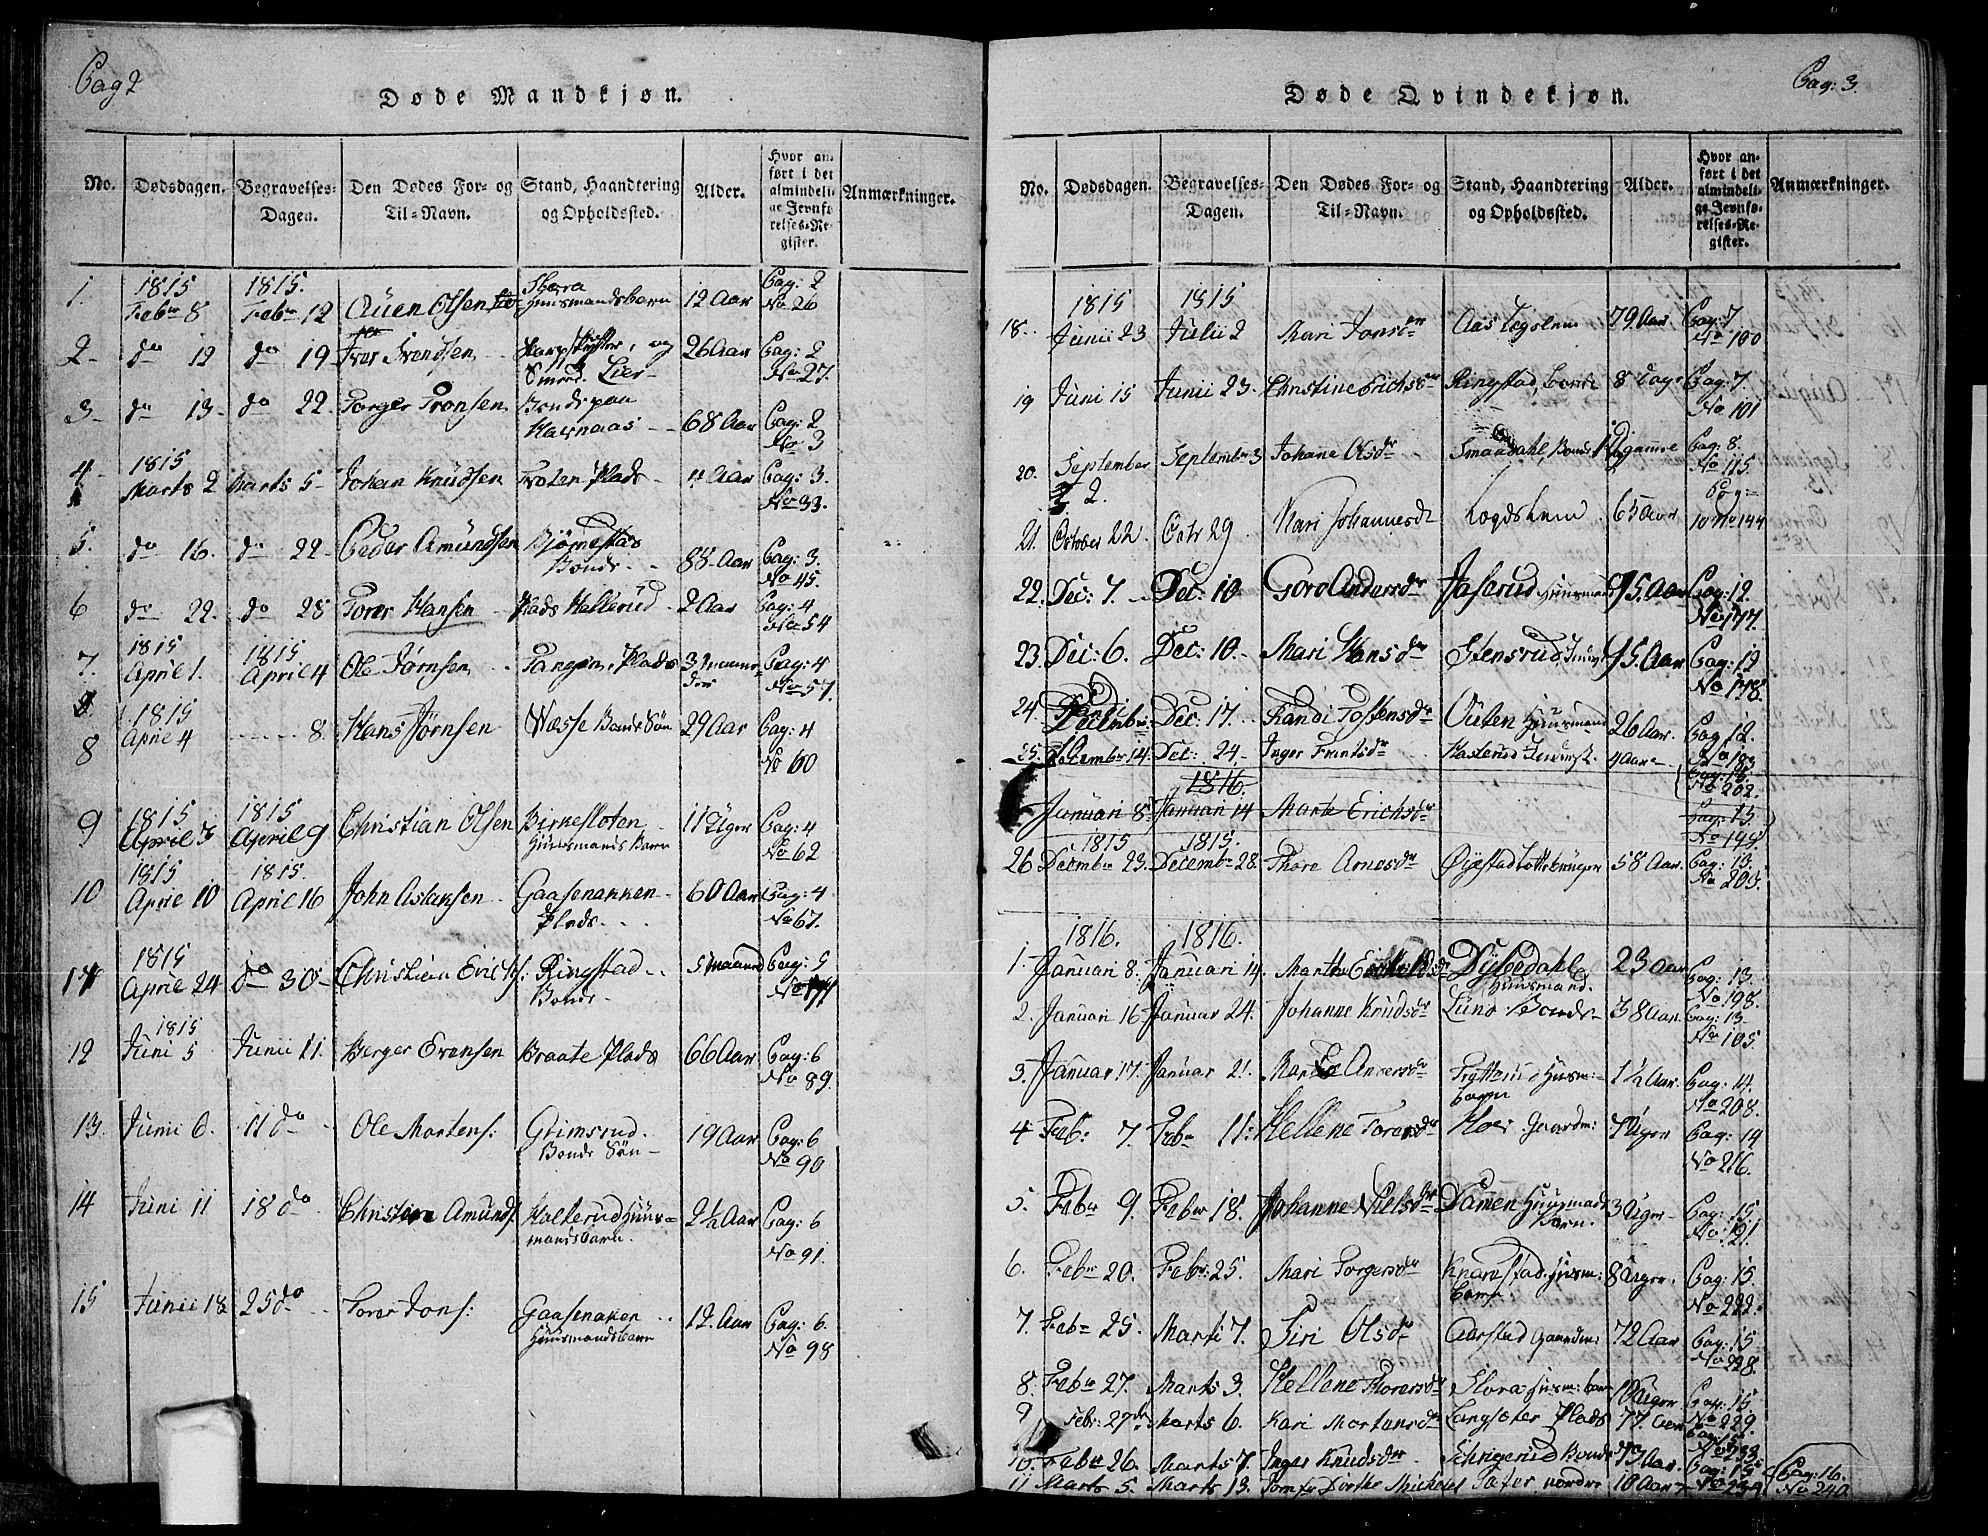 Pag 2
Døde Mandkjøn.
No. Dødsdagen. Begravelses-Dagen. Den Dødes For- og Til-Navn. Stand, Haandtering og Opholdssted. Alder. Hvor anført i det almindelige Jevnførelses-Register. Anmærkninger.
1. 1815 Febr 8 1815. Febr 12 Auen Olsen Huusmandsbarn 12 Aar Pag: 2 No 26
2 do 12 do 19 Iver Svendsen og Smed. Lier 26 Aar Pag: 2 No 27.
3 do 13 do 22. Torger Tronsen Bonde paa Kavnaas 68 Aar Pag: 2 No 3
4 1815 Marts 2 Marts 5 Johan Knudsen Plads 4 Aar Pag: 3. No 33.
5. do 16. do 22 Peder Amundsen Bjørnestad Bonde 88 Aar Pag: 3. No 45.
6 do 22. do 25 Torer Hansen Plads Hallerud 2 Aar Pag: 4 No 54
7. 1815 April 1. 1815 April 4 Ole Jørnsen Tangen, Plads Pag: 4 No 57.
8 1815 April 4 8 Hans Jørnsen Bonde Søn 29 Aar Pag: 4 No 60
9 1815 April 3 1815 April 9 Christian Olsen Birkesloten Huusmands Barn 11 Uger Pag: 4 No 62
10 1815 April 10 1815. April 16 John Aslaksen Gaasenakken Plads 60 Aar Pag: 4 No 67.
11 1815 April 24 do 30 Christian Erichs: Ringstad Bonde 5 maaned Pag: 5 No 77
12 1815 Juni 5 Junii 11. Berger Evensen Braate Plads 66 Aar Pag: 6 No 89.
13. Junii 6. 11 do Ole Mortens: Grimsrud. Bonde Søn 19 Aar Pag: 6 No 90
14 Juni 11 18 do Christian Amunds. Kallerud Huusmandsbarn. 2½ Aar Pag: 6 No 91.
15 Junii 18 25 do Torer Jons: Gaasenaken Huusmandsbarn 12. Aar Pag: 6. No 98
Pag: 3.
Døde Qvindekjøn.
No. Dødsdagen. Begravelses-Dagen. Den Dødes For- og Til-Navn. Stand, Haandtering og Opholdssted. Alder. Hvor anført i det almindelige Jevnførelses-Register. Anmærkninger.
18. 1815 Junii 23 1815 Julii 2 Mari Jonsdr Aas Lægslem 79 Aar Pag: 7 No 100
19 Juni 15 Junii 23. Christine Erichsdr Ringstad, Bonde 8 Dage Pag: 7. No 101
20. September 2. September 3 Johane Olsdr Smaadahl, Bonde Pag: 8. No 115
21. October 22. Octr 29 Kari Johannesdr Logdslem 65 Aar Pag: 10 No 144
22. Dec: 7. Dec: 10 Goro Andersdr Jaserud Huusmand 75. Aar Pag: 12. No 177.
23. Dec: 6. Dec: 10. Mari Hansdr Stensrud 75. Aar Pag: 12 No 178.
24. December Dec: 17. Randi Tostensdr Outen Huusmand 26 Aar. Pag 12. No 183
25. December 14. Dec: 24. Inger Frantsdr Kaslerud 4 Aar Pag: 13. No 202.
1816. Januari 8 Januari 14 Marte Erichsdr Pag: 13 No 145
26 1815 Decembr 23. 1815. Decembr 28. Thore Arnesdr Øijestad 58 Aar. Pag: 13. No 203.
1816. 1816.
1. Januari 8. Januari 14. Marthe Dybedahl Huusmand. 23 Aar Pag: 13. No 198.
2. Januari 16 Januar 24. Johanne Knudsdr Lund Bonde 38 Aar. Pag: 13 No 105.
3. Januar 17. Januar 21. Andersdr Frøtterud Huusm: barn 1½ Aar. Pag: 14. No 208.
4 Feb: 7. Feb 11: Hellene Toresdr Hoes Gaardm: 7 Uger Pag: 14 No 216.
5. Febr 9. Febr 18. Johanne Nielsdr Damen Huusmands Barn. 3 Uger Pag: 15 No 121.
6. Febr 20. Febr: 25. Mari Torgersdr Knarestad. Huusm: Barn. 8 Uger. Pag: 15. No 222.
7. Feb 25. Marti 7. Siri Olsdr Aarstad Gaardm: 72 Aar Pag: 15 No 228.
8. Febr 27. Marts 3. Hellene Thoresdr Flora: Huusm: barn Uger Pag: 15 No 229
9 Febr: 27de Marts 6. Kari Mortensdr Langsæter Plads 77. Aar Pag: 15. No 233
10. Febr 26. Marts 7. Inger Knudsdr Bonde 73 Aar. Pag: 15 No 239
11 Marts 5. Marts 13. Jomfr Dorthe Michelet Sæter nordre 18 Aar Pag: 16. No 240.